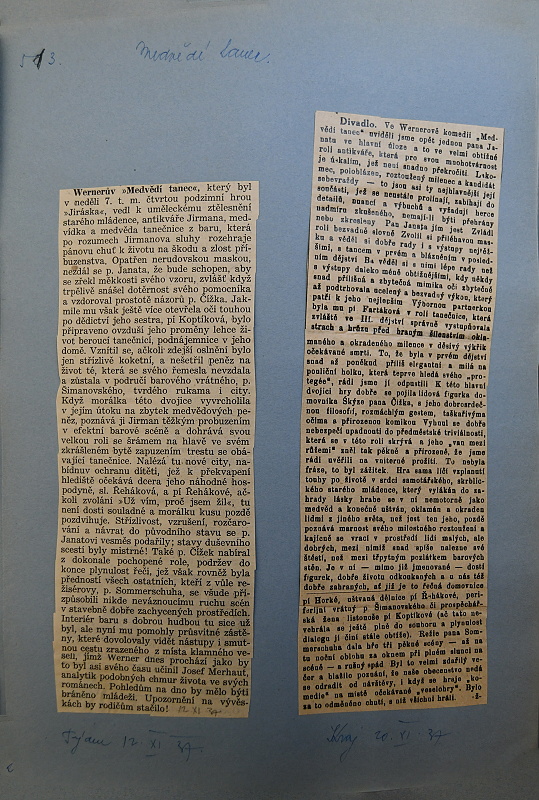 513.
Medvědí tanec.
Wernerův »Medvědí tanec«, který byl
v neděli 7. t. m. čtvrtou podzimní hrou
»Jiráska«, vedl k uměleckému ztělesnění
starého mládence, antikváře Jirmana, med-
vídka a medvěda tanečnice z baru, která
po rozumech Jirmanova sluhy rozehraje
pánovu chuť k životu na škodu a zlost pří-
buzenstva. Opatřen nerudovskou maskou,
nezdál se p. Janata, že bude schopen, aby
se zřekl měkkosti svého vzoru, zvlášť když
trpělivě snášel dotěrnost svého pomocníka
a vzdoroval prostotě názorů p. Čížka. Jak-
mile mu však ještě více otevřela oči touhou
po dědictví jeho sestra, pí Koptíková, bylo
připraveno ovzduší jeho proměny lehce ži-
vot beroucí tanečnicí, podnájemnice v jeho
domě. Vznítil se, ačkoli zdejší oslnění bylo
jen střízlivě koketní, a nešetřil peněz na
život té, která se svého řemesla nevzdala
a zůstala v područí barového vrátného, p.
Šimanovského, tvrdého rukama i city.
Když morálka této dvojice vyvrcholila
v jejím útoku na zbytek medvědových pe-
něz, poznává ji Jirman těžkým probuzením
v efektní barové scéně a dohrává svou
velkou roli se šrámem na hlavě ve svém
zkrášleném bytě zapuzením trestu se obá-
vající tanečnice. Nalézá tu nové city, na-
bídnuv ochranu dítěti, jež k překvapení
hlediště očekává dcera jeho náhodné hos-
podyně, sl. Řeháková, a pí Řehákové, ač-
koli zvolání »Už vím, proč jsem žil«, tu
není dosti souladné a morálku kusu pozdě
pozdvihuje. Střízlivost, vzrušení, rozčaro-
vání a návrat do původního stavu se p.
Janatovi vesměs podařily; stavy duševního
scestí byly mistrné! Také p. Čížek nabíral
z dokonale pochopené role, podržev do
konce plynulost řeči, jež však rovněž byla
předností všech ostatních, kteří z vůle re-
žisérovy, p. Sommerschuha, se všude při-
způsobili nikde neváznoucímu ruchu scén
v stavebně dobře zachycených prostředích.
Interiér baru s dobrou hudbou tu sice už
byl, ale nyní mu pomohly průsvitné zástě-
ny, které dovolovaly vidět nástupy i smut-
nou cestu zrazeného z místa klamného ve-
selí, jímž Werner dnes prochází jako by
to byl asi svého času učinil Josef Merhaut,
analytik podobných chmur života ve svých
románech. Pohledům na dno by mělo býti
bráněno mládeži. Upozornění na vývěs-
kách by rodičům stačilo!
12 XI 37
12. XI 37
Divadlo. Ve Wernerově komedii „Med-
vědí tanec" uviděli jsme opět jednou pana Ja-
natu ve hlavní úloze a to ve velmi obtížné
roli antikváře, která pro svou mnohotvárnost
je úskalím, jež není snadno překročiti. Lako-
mec, poloblázen, roztoužený milenec a kandidát
sebevraždy — to jsou asi ty nejhlavnější její
součásti, jež se neustále prolínají, zabíhají do
detailů, nuancí a výbuchů a vyžadují herce
nadmíru zkušeného, nemají-li býti přehrány
nebo zkresleny. Pan Janata jim jest. Zvládl
roli bezvadně slovně. Zvolil si přiléhavou mas-
ku a věděl si dobře rady i s výstupy nejtěž-
šími, s tancem v prvém a blázněním v posled-
ním dějství. Ba věděl si s nimi lépe rady než
s výstupy daleko méně obtížnějšími, kdy někdy
snad přílišná a zbytečná mimika oči zbytečně
až podtrhovala ucelený a bezvadný výkon, který
patří k jeho nejlepším. Výbornou partnerkou
byla mu pí Fartáková v roli tanečnice, která
zvláště ve III. dějství správně vystupňovala
strach a hrůzu před hraným šílenstvím okla-
maného a okradeného milence v děsivý výkřik
očekávané smrti. To, že byla v prvém dějství
snad až poněkud příliš elegantní a milá na
pouliční holku, která teprve hledá svého „pro-
tegée", rádi jsme jí odpustili. K této hlavní
dvojici hry dobře se pojila lidová figurka do-
movníka Skýze pana Čížka, s jeho dobrosrdeč-
nou filosofií, rozmáchlým gestem, taškařivýma
očima a přirozenou komikou. Vyhnul se dobře
nebezpečí upadnouti do předměstské triviálnosti,
která se v této roli skrývá a jeho „van mezi
růžemi" zněl tak pěkně a přirozeně, že jsme
rádi uvěřili na vnitřní prožití. To nebyla
fráze, to byl zážitek. Hra sama líčí vzplanutí
touhy po životě v srdci samotářského, skrblic-
kého starého mládence, který vylákán do za-
hrady lásky hrabe se v ní nemotorně jako
medvěd a konečně uštván, oklamán a okraden
lidmi z jiného světa, než jest ten jeho, pozdě
poznává marnost svého milostného roztoužení a
kajícně se vrací v prostředí lidí malých, ale
dobrých, mezi nimiž snad spíše nalezne své
štěstí, než mezi třpytným pozlátkem barových
stěn. Je v ní — mimo již jmenované — dosti
figurek, dobře životu odkoukaných a u nás též
dobře zahraných, ať již je to řečná domovnice
pí Horké, uštvaná dělnice pí Řehákové, peri-
ferijní vrátný p Šimanovského či prospěchář-
ská žena listonoše pí Koptíkové (ač tato ne-
vehrála se ještě plně do souboru a plynulost
dialogu jí činí stále obtíže). Režie pana Som-
merschuha dala hře tři pěkné scény — až na
tu noční oblohu za oknem při plném slunci na
scéně — a rušný spád. Byl to velmi zdařilý ve-
čer a blažilo poznání, že naše obecenstvo nedá
se odradit od návštěvy, i když se hraje „ko-
medie" na místě očekávané „veselohry". Bylo
za to odměněno chutí, s níž všichni hráli. -ž-
Kraj 20. XI 37